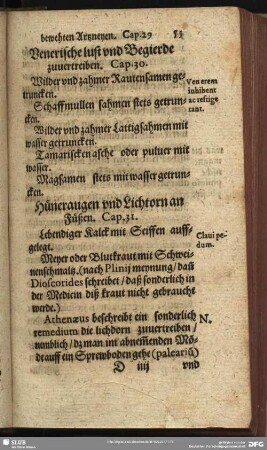 bewehten Artzneyen. Cap. 29 53
Venerische lust vnd Begierde
zuuertreiben. Cap. 30.
Wilder vnd zahmer Rautensamen ge-
truncken.
Venerem
inhibent
ac refrige
rant.
Schaffmullen sahmen stets getrun-
cken.
Wilder vnd zahmer Lattigsahmen mit
wasser getruncken.
Tamariscken asche oder puluer mit
wasser.
Magsamen stets mit wasser getrun-
cken.
Hüneraugen vnd Lichtorn an
Füßen. Cap. 31.
Lebendiger Kalck mit Seiffen auff-
gelegt.
Claui pe-
dum.
Meyer oder Blutkraut mit Schwei-
nenschmaltz, (nach Plinij meynung / dañ
Dioscorides schreibet / daß sonderlich in
der Medicin diß kraut nicht gebraucht
werde.)
Athenæus beschreibt ein sonderlich
N.
remedium die lichdorn zuuertreiben /
nemblich / dz man im abnem̃enden Mõ-
dt auff ein Sprewboden gehe (paleariũ)
D iiij vnd
SLUB